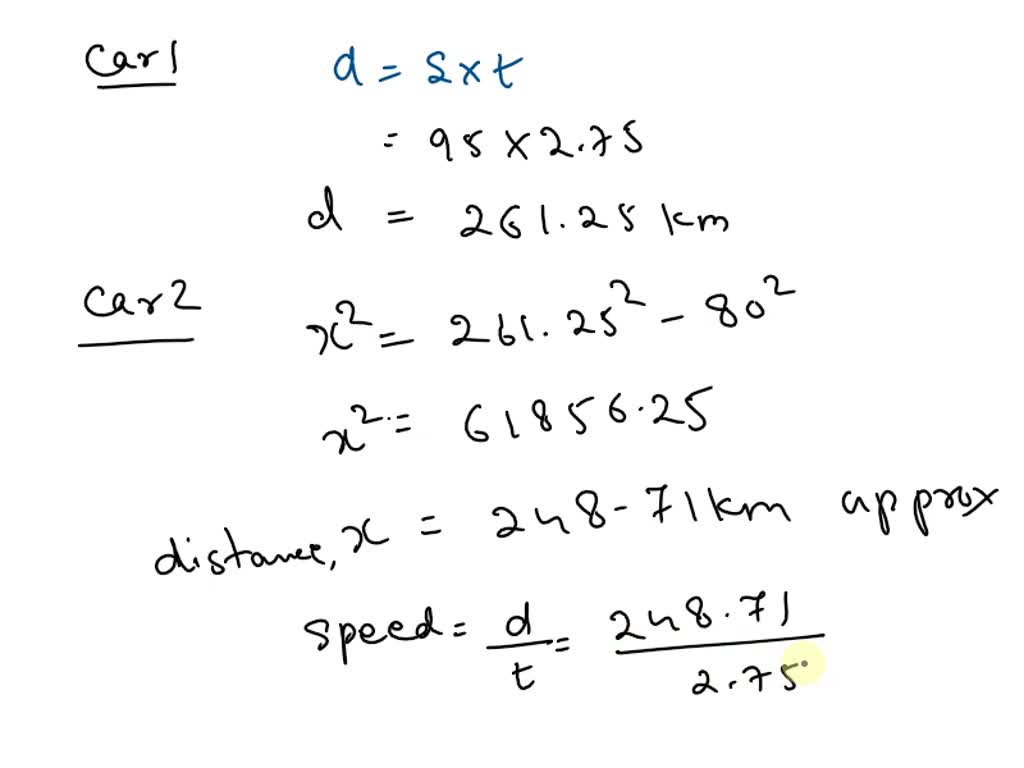 Car 1
d = s x t
= 95 x 2.75
d = 261.25 km
Car 2
x² = 261.25² - 80²
x² = 61856.25
distance, x = 248.71 km approx
speed = d/t = 248.71/2.75